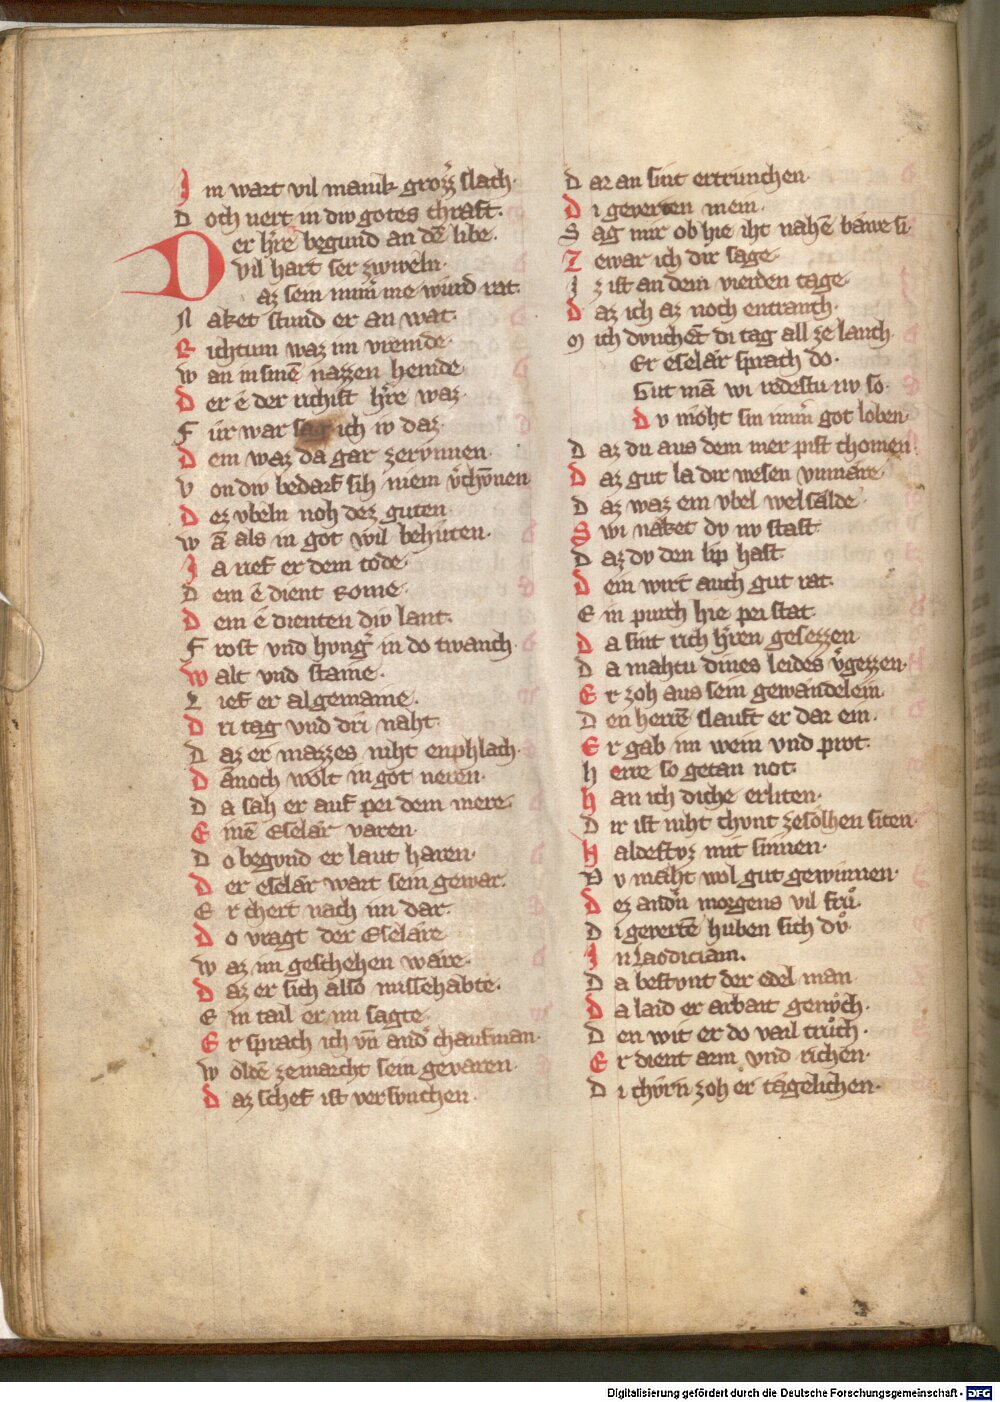 J m wart vil manik grozz̾ slach·
D och nert in div gotes chraft·
D er h̾re begund an dē libe·
vil hart ser zwiveln·
az sein nim̾ me wurd rat·
N aket stund er an wat·
R ichtum waz im vremde·
w an in sinē nazzen hemde·
D er ê der richist h̾re waz·
F ür war sag ich iv daz·
D em waz da gar zerunnen·
v on div bedarf sih niem v̾chvnen
D ez vbeln noh dez guten·
w ā als in got wil behuten·
J a rief er dem tode·
D em ê dient Rome·
D em ê dienten div lant·
F rost vnd hvng̾ in do twanch·
w alt vnd staine·
L ief er al gemaine·
D ri tag vnd dri naht·
D az er mazzes niht enphlach·
D ānoch wolt in got neren·
D a sah er auf pei dem mere·
E inē Eselær varen·
D o begund er laut haren·
D er eselær wart sein gewar·
E r chert nach im dar·
D o vragt der Eselære
w az im geschehen wære·
D az er sich also missehabte·
E in tail er im sagte·
E r sprach ich vn̄ and̾ chaufman·
w oldē ze marcht sein gevaren·
D az schef ist versunchen·
D ar an sint ertrunchen·
D i geverten mein·
S ag mir ob hie iht nahē bawe si·
Z ewar ich dir sage·
J z ist an dem vierden tage·
D az ich az noch entranch·
M ich dunchet di tag all ze lanch·
Er eselær sprach do·
Gut mā wi redestu nv so·
D v moht sin nim̾ got loben·
D az du aus dem mer pist chomen
D az gut la dir wesen vnmære·
D az waz ein vbel wel sælde
S wi naket dv nv stast·
D az dv den lip hast·
D ein wirt auch gut rat·
E in purch hie pei stat·
D a sint rich h̾ren gesezzen
D a mahtu dines leides v̾gezzen·
E r zoh aus sein gewandelein·
D en herrē slauft er dar ein·
E r gab im wein vnd prot·
h erre so getan not·
H an ich diche erliten·
D ir ist niht chvnt ze solhen siten·
H aldestvz mit sinnen·
D v maht wol gut gewinnen·
D ez and̾n morgens vil frů·
D i gevertē huben sich dv̊
J n Laodiciam·
D a bestvnt der edel man
D a laid er arbait genv̊ch·
D en wit er do vail trůch·
E r dient arm vnd richen·
D i chvrn zoh er tægelichen·
Digitalisierung gefördert durch die Deutsche Forschungsgemeinschaft - DFG